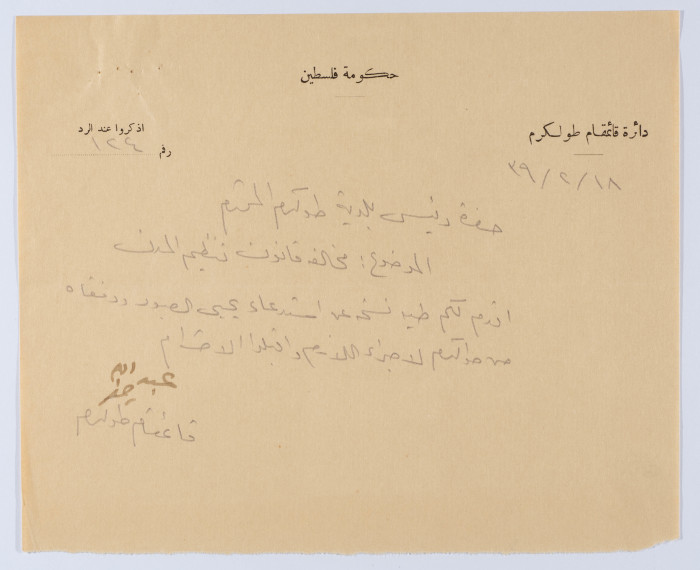 حكومة فلسطين
دائرة قائمقام طولكرم
اذكروا عند الرد
رقم ١٢٤
٣٩/٢/١٨
حضرة رئيس بلدية طولكرم المحترم
الموضوع: مخالفة قانون تنظيم المدن
اقدم لكم طيه نسخة عن استدعاء يحيى العبود ورفقاه
من طولكرم لاجراء اللازم واقبلوا الاحترام
عبد الله
قائمقام طولكرم